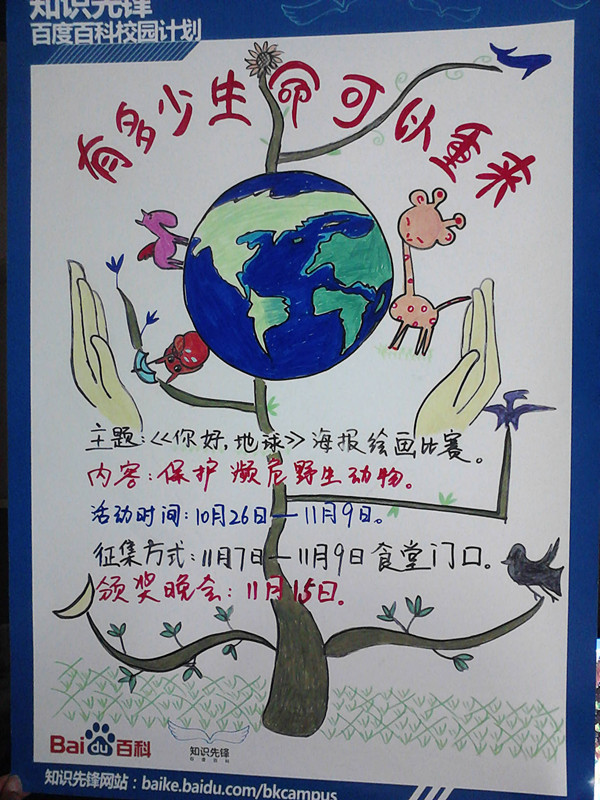 知识先锋
百度百科校园计划
有多少生命可以重来
主题:《你好,地球》海报绘画比赛。
内容:保护濒危野生动物。
活动时间:10月26日—11月9日。
征集方式:11月7日—11月9日食堂门口。
颁奖晚会:11月15日。
Baidu百科
知识先锋
百度百科
知识先锋网站:baike.baidu.com/bkcampus